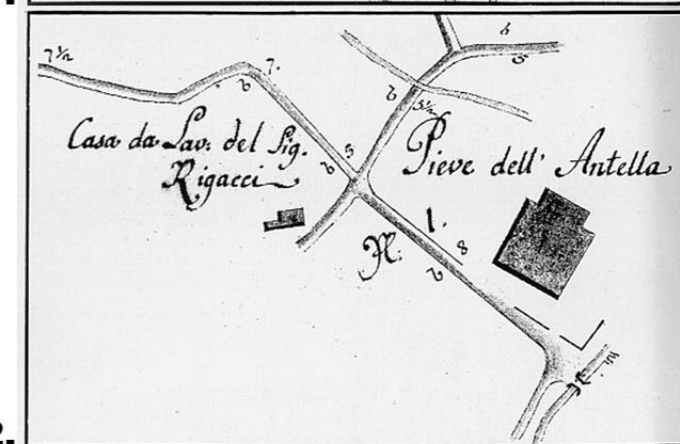 7½
7.
6
6
5
6
5
5½
Casa da Lav: del Sig.
Rigacci
Pieve dell' Antella
N: 1.
8
2.